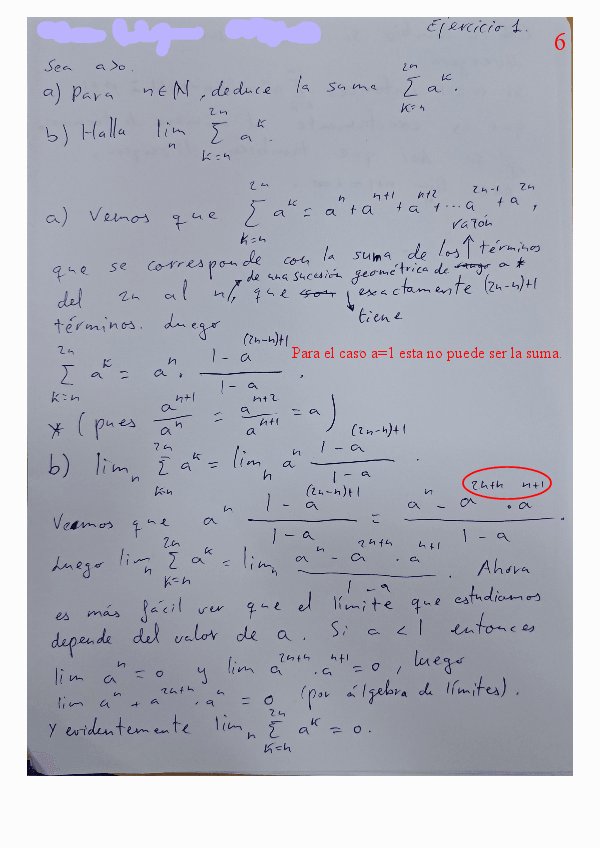 Ejercicio 1.
6
Sea a>0.
a) Para n∈ℕ, deduce la suma ∑_{k=n}^{2n} a^k.
b) Halla lim_n ∑_{k=n}^{2n} a^k.
a) Vemos que ∑_{k=n}^{2n} a^k = a^n + a^{n+1} + a^{n+2} + ... a^{2n-1} + a^{2n},
razón
que se corresponde con la suma de los términos
de una sucesión geométrica de a *
del 2n al n, que exactamente (2n-n)+1
tiene
términos. Luego
∑_{k=n}^{2n} a^k = a^n · (1-a^{(2n-n)+1})/(1-a).
Para el caso a=1 esta no puede ser la suma.
* (pues a^{n+1}/a^n = a^{n+2}/a^{n+1} = a)
b) lim_n ∑_{k=n}^{2n} a^k = lim_n a^n (1-a^{(2n-n)+1})/(1-a).
Veamos que a^n (1-a^{(2n-n)+1})/(1-a) = (a^n - a^{2n+n} · a^{n+1})/(1-a).
Luego lim_n ∑_{k=n}^{2n} a^k = lim_n (a^n - a^{2n+n} · a^{n+1})/(1-a). Ahora
es más fácil ver que el límite que estudiamos
depende del valor de a. Si a<1 entonces
lim a^n = 0 y lim a^{2n+n} · a^{n+1} = 0, luego
lim a^n + a^{2n+n} · a^n = 0 (por álgebra de límites).
Y evidentemente lim_n ∑_{k=n}^{2n} a^k = 0.